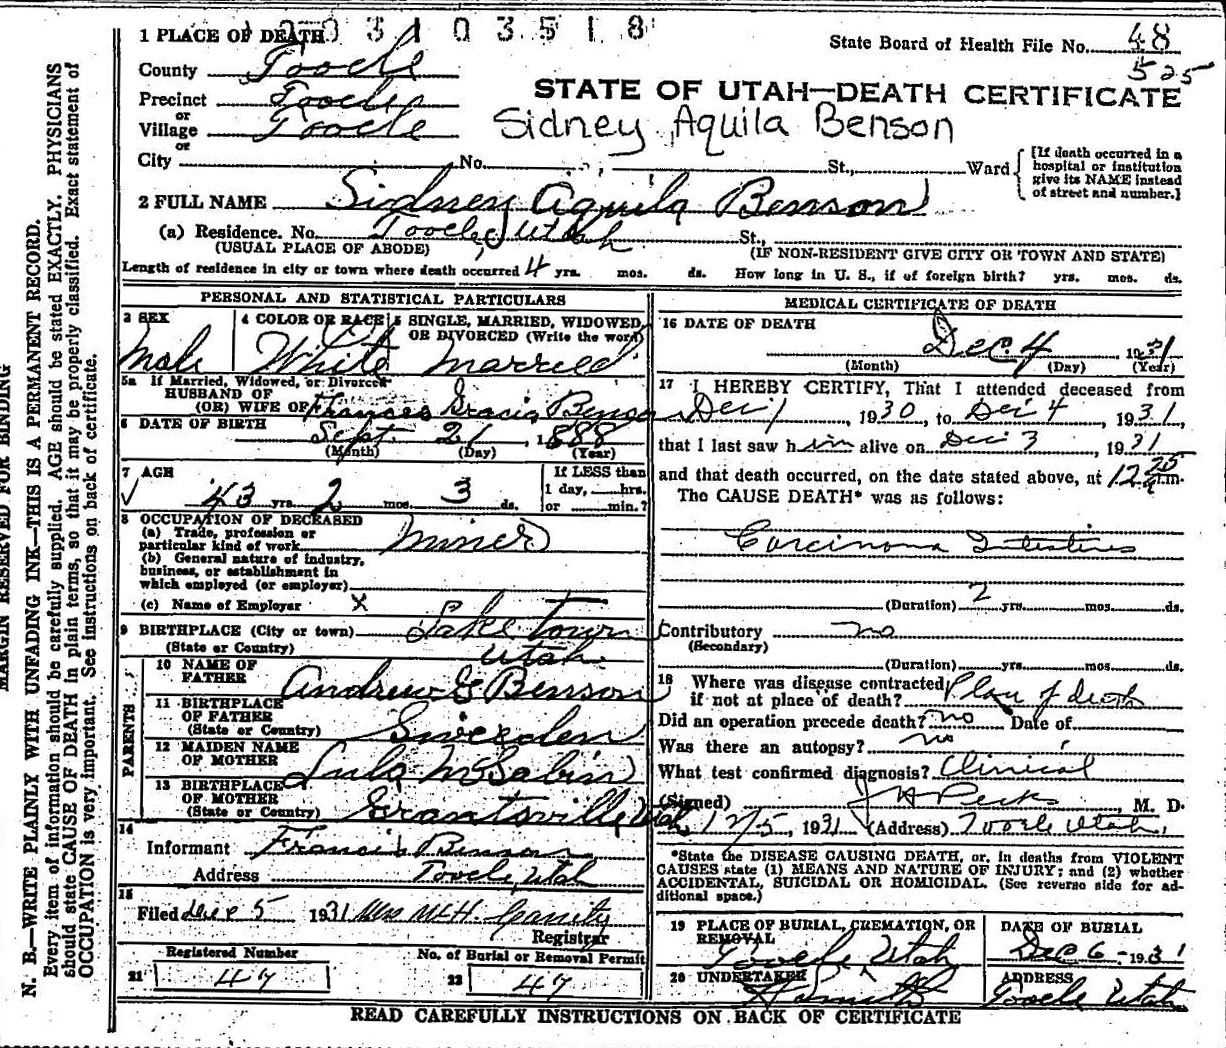 1 PLACE OF DEATH
031 03518
State Board of Health File No. 48
525
County Tooele
Precinct Tooele
or
Village Tooele
or
STATE OF UTAH—DEATH CERTIFICATE
Sidney Aquila Benson
City No. St., Ward
[If death occurred in a hospital or institution give its NAME instead of street and number.]
2 FULL NAME Sidney Aquila Benson
(a) Residence. No. Tooele, Utah St.,
(USUAL PLACE OF ABODE) (IF NON-RESIDENT GIVE CITY OR TOWN AND STATE)
Length of residence in city or town where death occurred 4 yrs. mos. ds. How long in U. S., if of foreign birth? yrs. mos. ds.
PERSONAL AND STATISTICAL PARTICULARS
3 SEX
Male
4 COLOR OR RACE
White
5 SINGLE, MARRIED, WIDOWED,
OR DIVORCED (Write the word)
Married
5a If Married, Widowed, or Divorced
HUSBAND OF
(OR) WIFE OF Frances Gracia Benson
6 DATE OF BIRTH Sept. 21, 1888
(Month) (Day) (Year)
7 AGE
43 yrs. 2 mos. 3 ds.
If LESS than
1 day, hrs.
or min.?
8 OCCUPATION OF DECEASED
(a) Trade, profession or
particular kind of work Miner
(b) General nature of industry,
business, or establishment in
which employed (or employer)
(c) Name of Employer x
9 BIRTHPLACE (City or town) Lake town
(State or Country) Utah
PARENTS
10 NAME OF
FATHER Andrew G Benson
11 BIRTHPLACE
OF FATHER
(State or Country) Sweden
12 MAIDEN NAME
OF MOTHER Lula M Sabin
13 BIRTHPLACE
OF MOTHER
(State or Country) Grantsville, Utah
14
Informant Francis Benson
Address Tooele, Utah
15
Filed Dec 5 1931 Mrs
Registrar
Registered Number
21 47
No. of Burial or Removal Permit
22 47
MEDICAL CERTIFICATE OF DEATH
16 DATE OF DEATH
Dec. 4, 1931
(Month) (Day) (Year)
17 I HEREBY CERTIFY, That I attended deceased from
Dec 1, 1930, to Dec 4, 1931,
that I last saw him alive on Dec 3, 1931
and that death occurred, on the date stated above, at 12:25 a.m.
The CAUSE DEATH* was as follows:
Carcinoma Intestines
(Duration) 2 yrs. mos. ds.
Contributory no
(Secondary)
(Duration) yrs. mos. ds.
18 Where was disease contracted
if not at place of death? Place of death
Did an operation precede death? no Date of
Was there an autopsy? no
What test confirmed diagnosis? Clinical
(Signed) J H Peck, M. D.
12/5, 1931 (Address) Tooele Utah.
*State the DISEASE CAUSING DEATH, or, in deaths from VIOLENT
CAUSES state (1) MEANS AND NATURE OF INJURY; and (2) whether
ACCIDENTAL, SUICIDAL OR HOMICIDAL. (See reverse side for ad-
ditional space.)
19 PLACE OF BURIAL, CREMATION, OR
REMOVAL
Tooele, Utah
DATE OF BURIAL
Dec 6 - 1931
20 UNDERTAKER
ADDRESS
Tooele Utah
READ CAREFULLY INSTRUCTIONS ON BACK OF CERTIFICATE
MARGIN RESERVED FOR BINDING
N. B.—WRITE PLAINLY WITH UNFADING INK—THIS IS A PERMANENT RECORD.
Every item of information should be carefully supplied. AGE should be stated EXACTLY. PHYSICIANS
should state CAUSE OF DEATH in plain terms, so that it may be properly classified. Exact statement of
OCCUPATION is very important. See instructions on back of certificate.